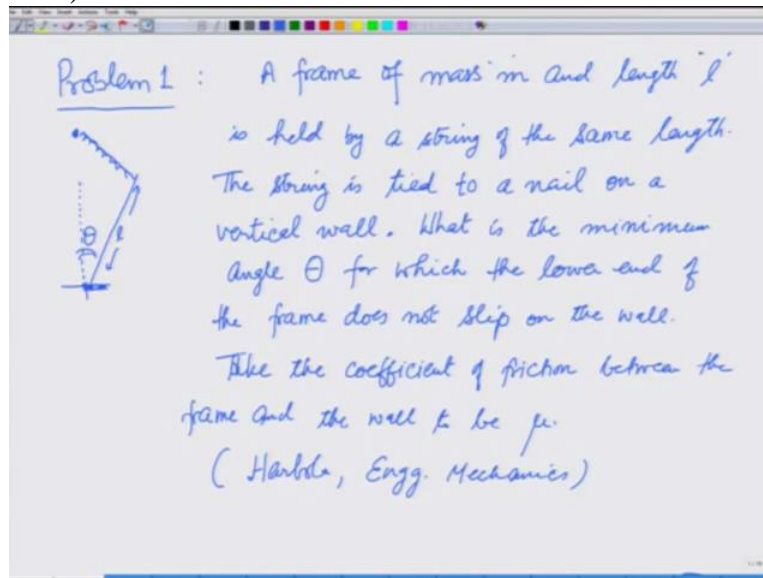 Problem 1 : A frame of mass 'm' and length 'l'
is held by a string of the same length.
The string is tied to a nail on a
vertical wall. What is the minimum
θ
l
angle θ for which the lower end of
the frame does not slip on the wall.
Take the coefficient of friction between the
frame and the wall to be μ.
(Harbola, Engg. Mechanics)